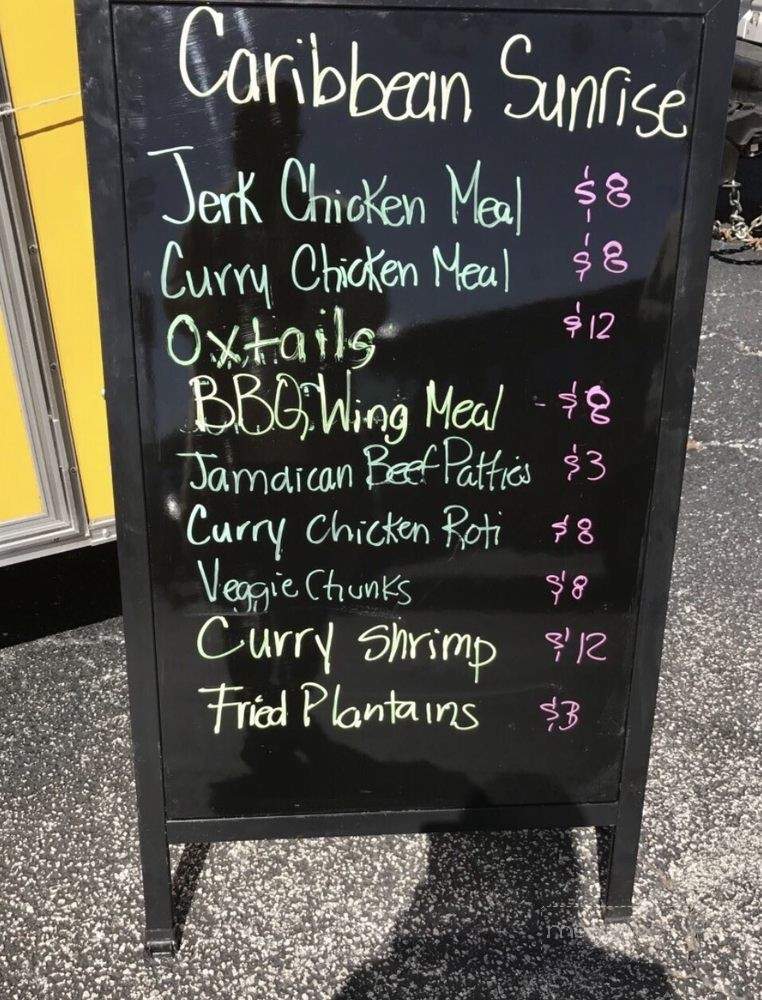 Caribbean Sunrise
Jerk Chicken Meal $8
Curry Chicken Meal $8
Oxtails $12
BBQ Wing Meal - $8
Jamaican Beef Patties $3
Curry Chicken Roti $8
Veggie Chunks $8
Curry Shrimp $12
Fried Plantains $3